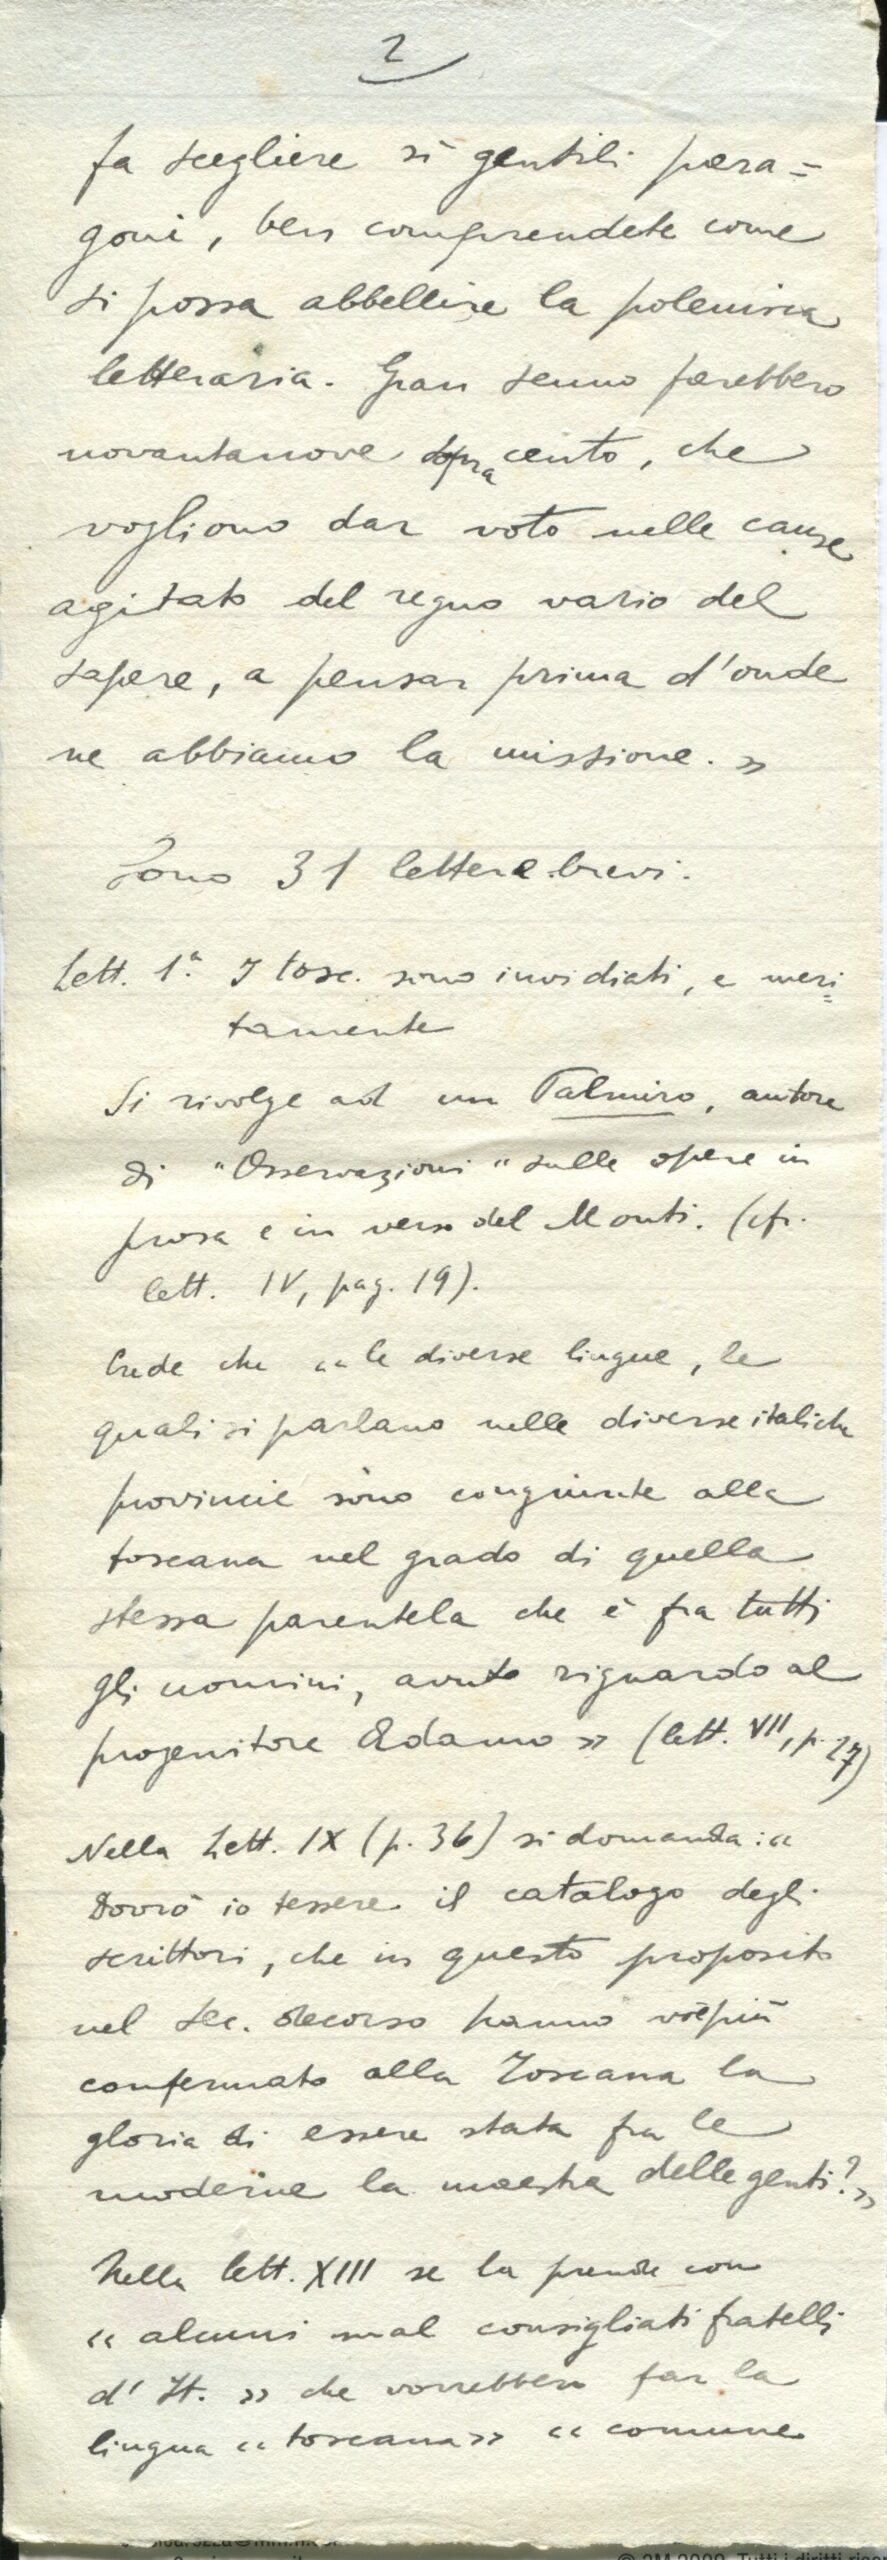 2
fa scegliere sì gentili para=
goni, ben comprendete come
si possa abbellire la polemica
letteraria. Gran senno farebbero
novantanove sopra cento, che
vogliono dar voto nelle cause
agitate del regno vario del
sapere, a pensar prima d'onde
ne abbiamo la missione. »
Sono 31 lettere brevi.
Lett. 1ª. I tosc. sono invidiati, e meri=
tamente
Si rivolge ad un Palmiro, autore
di "Osservazioni" sulle opere in
prosa e in verso del Monti. (cfr.
lett. IV, pag. 19).
Crede che «le diverse lingue, le
quali si parlano nelle diverse italiche
provincie sono congiunte alla
toscana nel grado di quella
stessa parentela che è fra tutti
gli uomini, avuto riguardo al
progenitore Adamo » (lett. VII, p. 27)
Nella Lett. IX (p. 36) si domanda: «
Dovrò io tessere il catalogo degli
scrittori, che in questo proposito
nel sec. decorso hanno vièpiù
confermato alla Toscana la
gloria di essere stata fra le
moderne la maestra delle genti? »
Nella lett. XIII se la prende con
« alcuni mal consigliati fratelli
d' It. » che vorrebbero far la
lingua « toscana » « comune